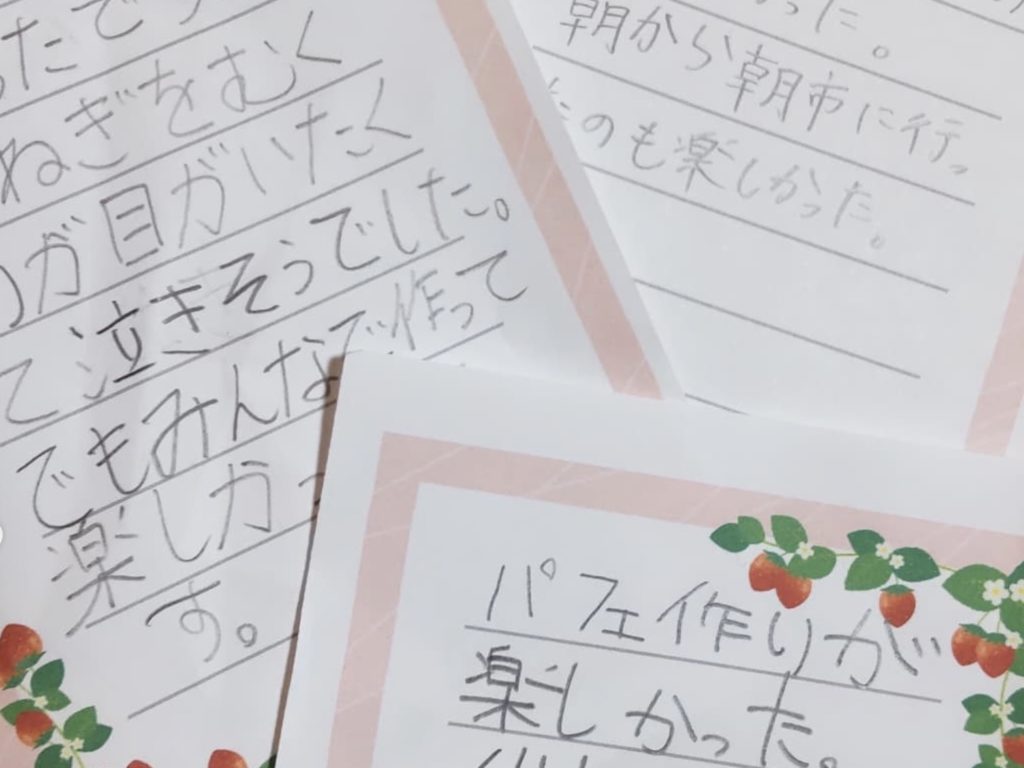 たです
ねぎをむく
が目がいたく
て泣きそうでした。
でもみんなで作って
楽しかっ
す。
った。
朝から朝市に行っ
たのも楽しかった。
パフェ作りが
楽しかった。